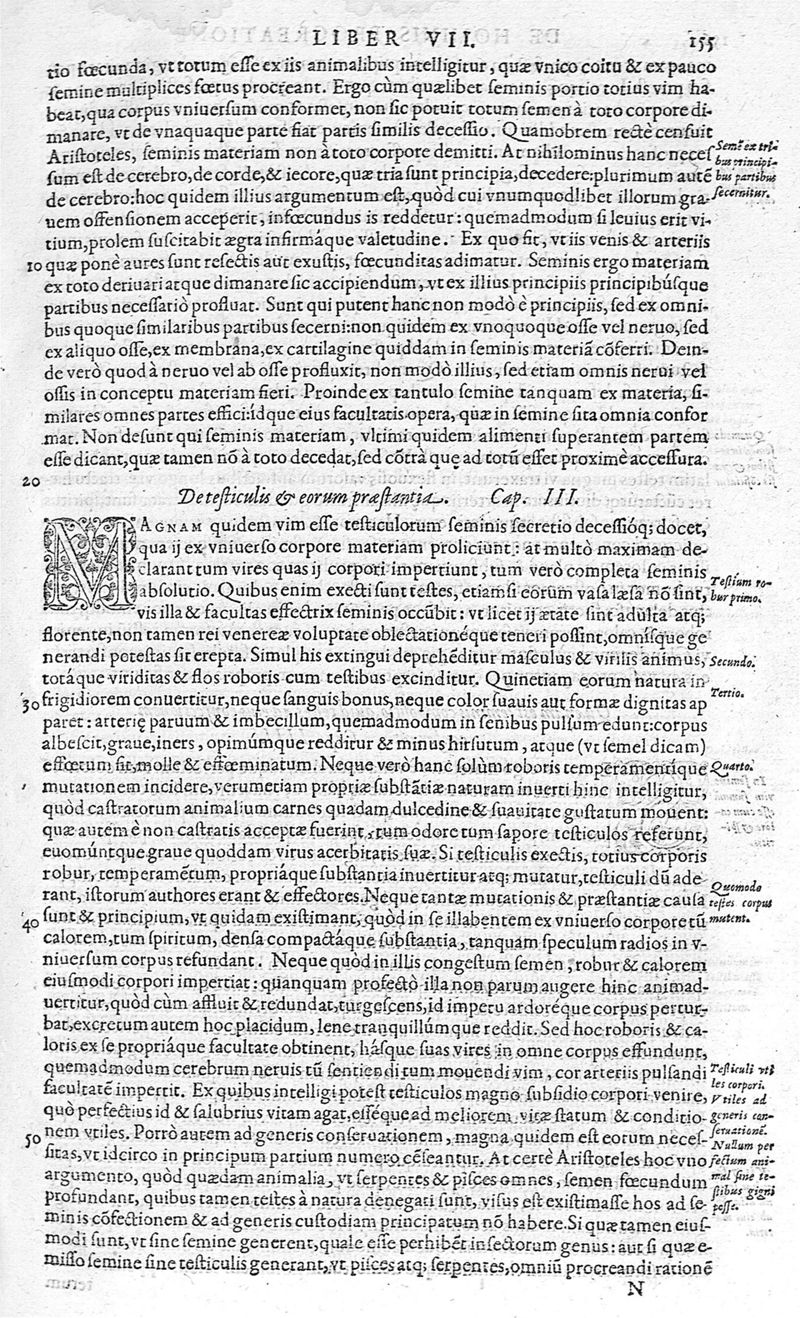 LIBER VII. 155
tio fœcunda, vt totum esse ex iis animalibus intelligitur, quæ vnico coitu & ex pauco
semine multiplices fœtus procreant. Ergo cùm quælibet seminis portio totius vim ha-
beat, qua corpus vniuersum conformet, non sic potuit totum semen à toto corpore di-
manare, vt de vnaquaque parte fiat partis similis decessio. Quamobrem rectè censuit
Aristoteles, seminis materiam non à toto corpore demitti. At nihilominus hanc neces
Semē ex tri-
bus principi-
bus partibus
secernitur.
sum est de cerebro, de corde, & iecore, quæ tria sunt principia, decedere: plurimum autē
de cerebro: hoc quidem illius argumentum est, quòd cui vnumquodlibet illorum gra-
uem offensionem acceperit, infœcundus is reddetur: quemadmodum si leuius erit vi-
tium, prolem suscitabit ægra infirmáque valetudine. Ex quo fit, vt iis venis & arteriis
10 quæ ponè aures sunt resectis aut exustis, fœcunditas adimatur. Seminis ergo materiam
ex toto deriuari atque dimanare sic accipiendum, vt ex illius principiis principibúsque
partibus necessariò profluat. Sunt qui putent hanc non modò è principiis, sed ex omni-
bus quoque similaribus partibus secerni: non quidem ex vnoquoque osse vel neruo, sed
ex aliquo osse, ex membrana, ex cartilagine quiddam in seminis materiā cōferri. Dein-
de verò quod à neruo vel ab osse profluxit, non modò illius, sed etiam omnis nerui vel
ossis in conceptu materiam fieri. Proinde ex tantulo semine tanquam ex materia, si-
milares omnes partes effici: ídque eius facultatis opera, quæ in semine sita omnia confor
mat. Non desunt qui seminis materiam, vltimi quidem alimenti superantem partem
esse dicant, quæ tamen nō à toto decedat, sed cōtrà quę ad totū esset proximè accessura.
20
De testiculis & eorum præstantia. Cap. III.
MAGNAM quidem vim esse testiculorum seminis secretio decessióq; docet,
qua ij ex vniuerso corpore materiam proliciunt: at multò maximam de-
clarant tum vires quas ij corpori impertiunt, tum verò completa seminis
absolutio. Quibus enim execti sunt testes, etiamsi eorum vasa læsa nō sint,
Testium ro-
bur primo.
vis illa & facultas effectrix seminis occūbit: vt licet ij ætate sint adulta atq;
florente, non tamen rei venereæ voluptate oblectationéque teneri possint, omnísque ge
nerandi potestas sit erepta. Simul his extingui deprehēditur masculus & virilis animus,
Secundo.
totáque viriditas & flos roboris cum testibus excinditur. Quinetiam eorum natura in
Tertio.
30 frigidiorem conuertitur, neque sanguis bonus, neque color suauis aut formæ dignitas ap
paret: arterię paruum & imbecillum, quemadmodum in senibus pulsum edunt: corpus
albescit, graue, iners, opimúmque redditur & minus hirsutum, atque (vt semel dicam)
effœtum fit, molle & effœminatum. Neque verò hanc solùm roboris temperamentíque
Quarto.
mutationem incidere, verumetiam propriæ substātiæ naturam inuerti hinc intelligitur,
quòd castratorum animalium carnes quadam dulcedine & suauitate gustatum mouent:
quæ autem è non castratis acceptæ fuerint, tum odore tum sapore testiculos referunt,
euomúntque graue quoddam virus acerbitatis suæ. Si testiculis exectis, totius corporis
robur, temperamētum, propriáque substantia inuertitur atq; mutatur, testiculi dū ade
rant, istorum authores erant & effectores. Neque tantæ mutationis & præstantiæ causa
Quomodo
testes corpus
mutent.
40 sunt & principium, vt quidam existimant, quòd in se illabentem ex vniuerso corpore tū
calorem, tum spiritum, densa compactáque substantia, tanquam speculum radios in v-
niuersum corpus refundant. Neque quòd in illis congestum semen, robur & calorem
eiusmodi corpori impertiat: quanquam profectò illa non parum augere hinc animad-
uertitur, quòd cùm affluit & redundat, turgescens, id impetu ardoréque corpus pertur-
bat, excretum autem hoc placidum, lene tranquillúmque reddit. Sed hoc roboris & ca-
loris ex se propriáque facultate obtinent, hásque suas vires in omne corpus effundunt,
quemadmodum cerebrum neruis tū sentiendi tum mouendi vim, cor arteriis pulsandi
Testiculi vti
les corpori.
facultatē impertit. Ex quibus intelligi potest testiculos magno subsidio corpori venire,
Vtiles ad
generis con-
seruationē.
quò perfectius id & salubrius vitam agat, esséque ad meliorem vitæ statum & conditio-
50 nem vtiles. Porrò autem ad generis conseruationem, magna quidem est eorum neces-
Nullum per
fectum ani-
mal sine te-
stibus gigni
posse.
sitas, vt idcirco in principum partium numero cēseantur. At certè Aristoteles hoc vno
argumento, quòd quædam animalia, vt serpentes & pisces omnes, semen fœcundum
profundant, quibus tamen testes à natura denegati sunt, visus est existimasse hos ad se-
minis cōfectionem & ad generis custodiam principatum nō habere. Si quæ tamen eius-
modi sunt, vt sine semine generent, quale esse perhibēt insectorum genus: aut si quæ e-
misso semine sine testiculis generant, vt pisces atq; serpentes, omniū procreandi rationē
N